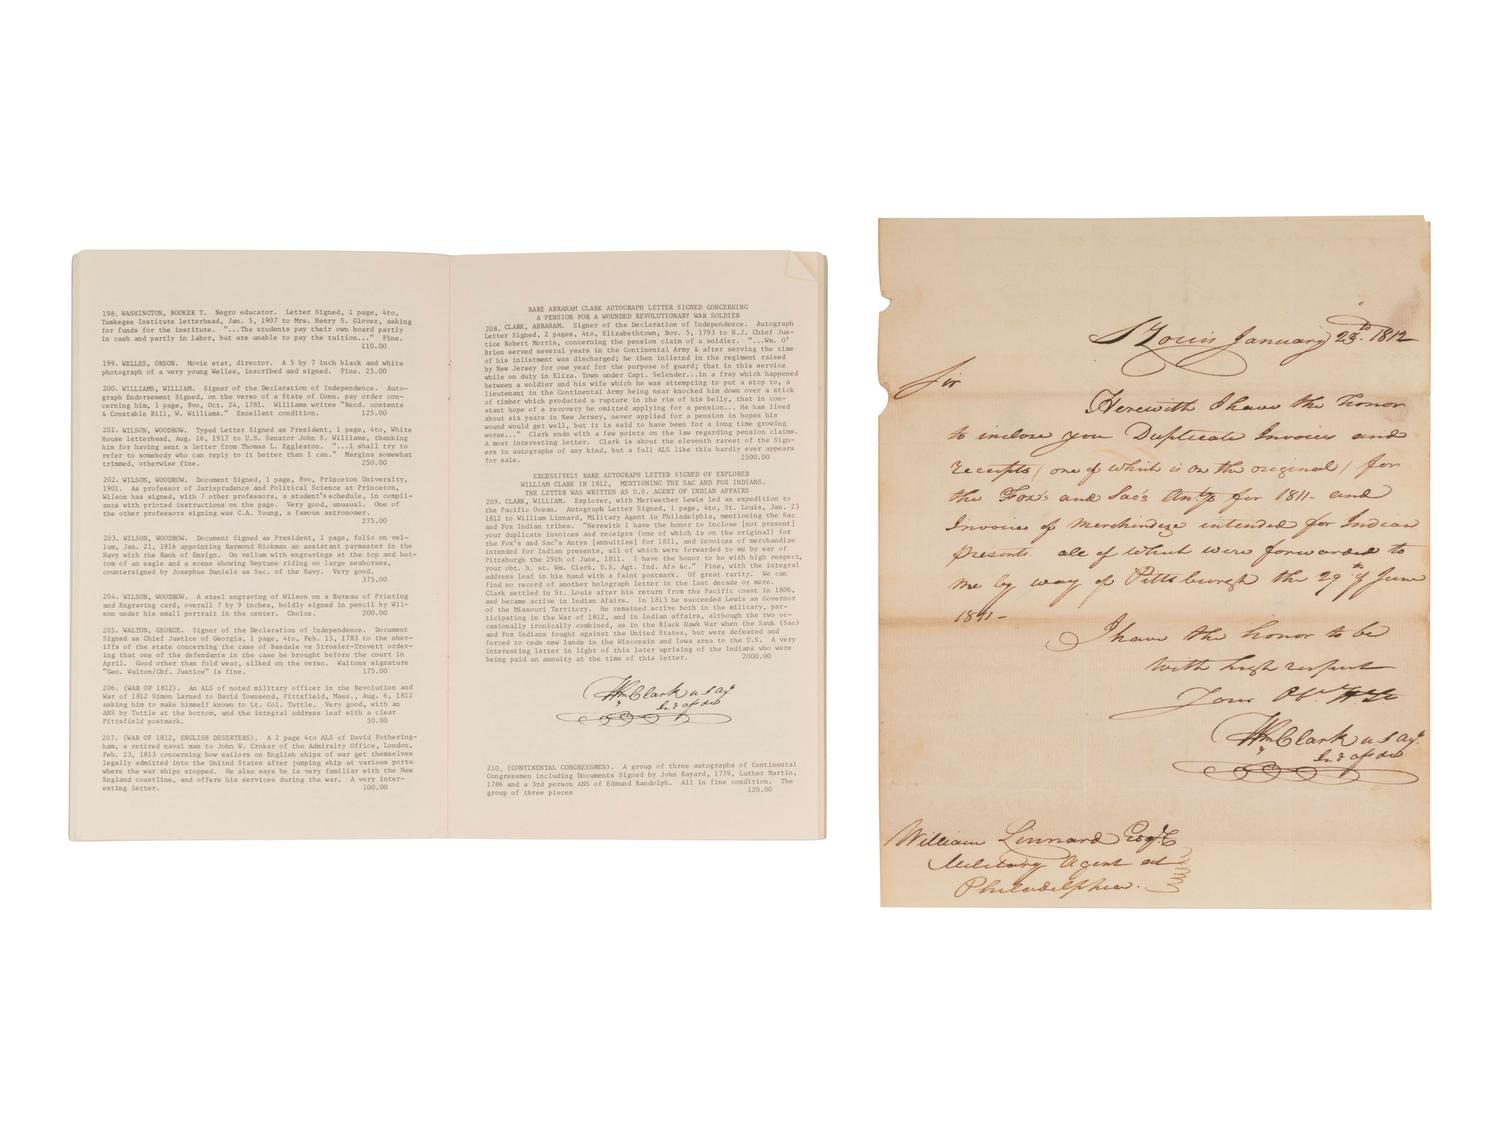 198. WASHINGTON, BOOKER T. Negro educator. Letter Signed, 1 page, 4to,
Tuskegee Institute letterhead, Jan. 5, 1907 to Mrs. Henry S. Glover, asking
for funds for the institute. "...The students pay their own board partly
in cash and partly in labor, but are unable to pay the tuition..." Fine.
110.00
199. WELLES, ORSON. Movie star, director. A 5 by 7 inch black and white
photograph of a very young Welles, inscribed and signed. Fine. 25.00
200. WILLIAMS, WILLIAM. Signer of the Declaration of Independence. Auto-
graph Endorsement Signed, on the verso of a State of Conn. pay order con-
cerning him, 1 page, 8vo, Oct. 24, 1781. Williams writes "Recd. contents
& Constable Bill, W. Williams." Excellent condition. 125.00
201. WILSON, WOODROW. Typed Letter Signed as President, 1 page, 4to, White
House letterhead, Aug. 16, 1917 to U.S. Senator John S. Williams, thanking
him for having sent a letter from Thomas L. Eggleston. "...I shall try to
refer to somebody who can reply to it better than I can." Margins somewhat
trimmed, otherwise fine. 250.00
202. WILSON, WOODROW. Document Signed, 1 page, 8vo, Princeton University,
1901. As professor of Jurisprudence and Political Science at Princeton,
Wilson has signed, with 7 other professors, a student's schedule, in compli-
ance with printed instructions on the page. Very good, unusual. One of
the other professors signing was C.A. Young, a famous astronomer.
275.00
203. WILSON, WOODROW. Document Signed as President, 1 page, folio on vel-
lum, Jan. 21, 1916 appointing Raymond Hickman an assistant paymaster in the
Navy with the Rank of Ensign. On vellum with engravings at the top and bot-
tom of an eagle and a scene showing Neptune riding on large seahorses,
countersigned by Josephus Daniels as Sec. of the Navy. Very good.
375.00
204. WILSON, WOODROW. A steel engraving of Wilson on a Bureau of Printing
and Engraving card, overall 7 by 9 inches, boldly signed in pencil by Wil-
son under his small portrait in the center. Choice. 200.00
205. WALTON, GEORGE. Signer of the Declaration of Independence. Document
Signed as Chief Justice of Georgia, 1 page, 4to, Feb. 15, 1783 to the sher-
iffs of the state concerning the case of Basdale vs Strosier-Trovett order-
ing that one of the defendants in the case be brought before the court in
April. Good other than fold wear, silked on the verso. Waltons signature
"Geo. Walton/Chf. Justice" is fine. 175.00
206. (WAR OF 1812). An ALS of noted military officer in the Revolution and
War of 1812 Simon Larned to David Townsend, Pittsfield, Mass., Aug. 6, 1812
asking him to make himself known to Lt. Col. Tuttle. Very good, with an
ANS by Tuttle at the bottom, and the integral address leaf with a clear
Pittsfield postmark. 50.00
207. (WAR OF 1812, ENGLISH DESERTERS). A 2 page 4to ALS of David Fothering-
ham, a retired naval man to John W. Croker of the Admiralty Office, London,
Feb. 23, 1813 concerning how sailors on English ships of war get themselves
legally admitted into the United States after jumping ship at various ports
where the war ships stopped. He also says he is very familiar with the New
England coastline, and offers his services during the war. A very inter-
esting letter. 100.00
RARE ABRAHAM CLARK AUTOGRAPH LETTER SIGNED CONCERNING
A PENSION FOR A WOUNDED REVOLUTIONARY WAR SOLDIER
208. CLARK, ABRAHAM. Signer of the Declaration of Independence. Autograph
Letter Signed, 2 pages, 4to, Elizabethtown, Nov. 5, 1793 to N.J. Chief Jus-
tice Robert Morris, concerning the pension claim of a soldier. "...Wm. O'
Brien served several years in the Continental Army & after serving the time
of his inlistment was discharged; he then inlisted in the regiment raised
by New Jersey for one year for the purpose of guard; that in this service
while on duty in Eliza. Town under Capt. Selender...in a fray which happened
between a soldier and his wife which he was attempting to put a stop to, a
lieutenant in the Continental Army being near knocked him down over a stick
of timber which producted a rupture in the rim of his belly, that in con-
stant hope of a recovery he omitted applying for a pension... He has lived
about six years in New Jersey, never applied for a pension in hopes his
wound would get well, but it is said to have been for a long time growing
worse..." Clark ends with a few points on the law regarding pension claims.
A most interesting letter. Clark is about the eleventh rarest of the Sign-
ers in autographs of any kind, but a full ALS like this hardly ever appears
for sale. 2500.00
EXCESSIVELY RARE AUTOGRAPH LETTER SIGNED OF EXPLORER
WILLIAM CLARK IN 1812, MENTIONING THE SAC AND FOX INDIANS.
THE LETTER WAS WRITTEN AS U.S. AGENT OF INDIAN AFFAIRS
209. CLARK, WILLIAM. Explorer, with Meriwether Lewis led an expedition to
the Pacific Ocean. Autograph Letter Signed, 1 page, 4to, St. Louis, Jan. 23
1812 to William Linnard, Military Agent in Philadelphia, mentioning the Sac
and Fox Indian tribes. "Herewith I have the honor to inclose [not present]
your duplicate invoices and receipts (one of which is on the original) for
the Fox's and Sac's Antys [annuities] for 1811, and invoices of merchandize
intended for Indian presents, all of which were forwarded to me by way of
Pittsburgh the 29th of June, 1811. I have the honor to be with high respect,
your obt. h. st. Wm. Clark, U.S. Agt. Ind. Afs &c." Fine, with the integral
address leaf in his hand with a faint postmark. Of great rarity. We can
find no record of another holograph letter in the last decade or more.
Clark settled in St. Louis after his return from the Pacific coast in 1806,
and became active in Indian Afairs. In 1813 he succeeded Lewis as Governor
of the Missouri Territory. He remained active both in the military, par-
ticipating in the War of 1812, and in Indian affairs, although the two oc-
casionally ironically combined, as in the Black Hawk War when the Sauk (Sac)
and Fox Indians fought against the United States, but were defeated and
forced to cede new lands in the Wisconsin and Iowa area to the U.S. A very
interesting letter in light of this later uprising of the Indians who were
being paid an annuity at the time of this letter. 2000.00
Wm Clark U S Agt.
Ind afds
210. (CONTINENTAL CONGRESSMEN). A group of three autographs of Continental
Congressmen including Documents Signed by John Bayard, 1779, Luther Martin,
1786 and a 3rd person ANS of Edmund Randolph. All in fine condition. The
group of three pieces 120.00
St Louis January 23rd. 1812
Sir
Herewith I have the honor
to inclose you Duplicate Invoices and
receipts (one of which is on the original) for
the Fox's and Sac's Antys for 1811 - and
Invoices of Merchindize intended for Indian
presents all of which were forwarded to
me by way of Pittsburgh the 29th of June
1811 -
I have the honor to be
with high respect
Your Obt. H St
Wm Clark U S Agt.
Ind afds
William Linnard Esqr.
Military Agent at
Philadelphia.